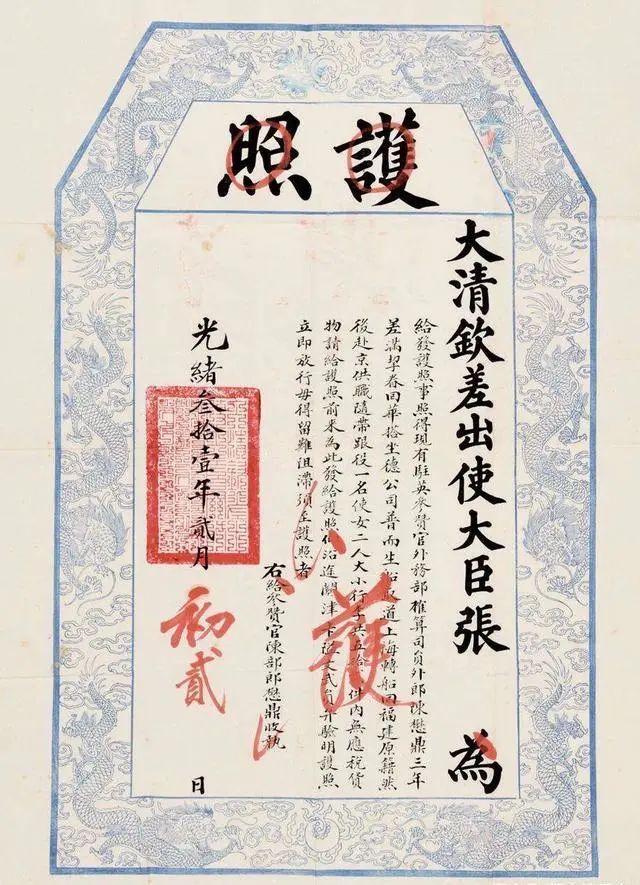 護照
大清欽差出使大臣張 為
給發護照事照得現有駐英參贊官外務部榷算司員外郎陳懋鼎三年
差滿挈眷回華搭坐德公司普而生船取道上海轉船回福建原籍然
後赴京供職隨帶跟役一名使女二人大小行李共五拾 件內無應稅貨
物請給護照前來為此發給護照仰沿途關津卡隘文武員弁驗明護照
立即放行毋得留難阻滯須至護照者
右給參贊官陳部郎懋鼎收執
光緒叁拾壹年貳月初貳日
護